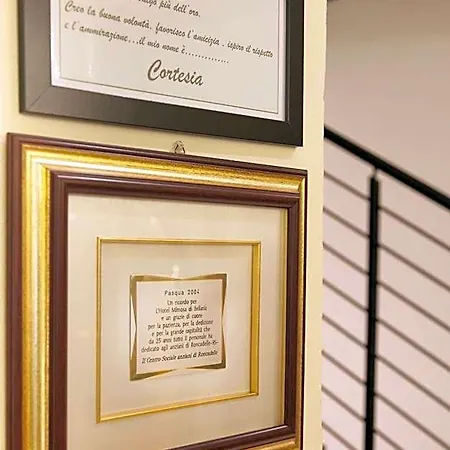 più dell'oro.
Creo la buona volontà, favorisco l'amicizia, ispiro il rispetto
e l'ammirazione...il mio nome è..............
Cortesia
Pasqua 2004
Un ricordo per
l'Hotel Mimosa di Bellaria
e un grazie di cuore
per la pazienza, per la dedizione
e per la grande capitalità che
da 25 anni tutto il personale ha
dedicato agli anziani di Roncadello-RS-
Il Centro Sociale anziani di Roncadello